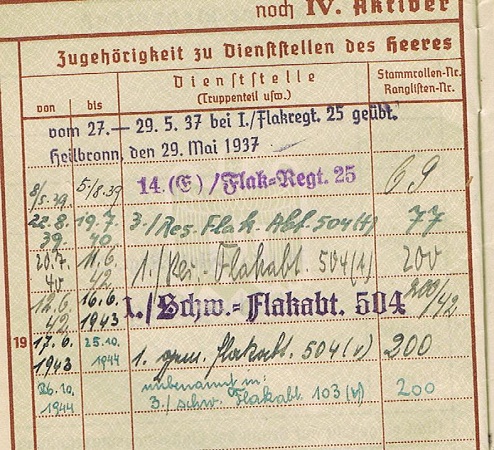 noch IV. Aktiver
Zugehörigkeit zu Dienststellen des Heeres
von
bis
Dienststelle
(Truppenteil usw.)
Stammrollen-Nr.
Ranglisten-Nr.
vom 27.— 29. 5. 37 bei I./Flakregt. 25 geübt.
Heilbronn, den 29. Mai 1937
8/5.39. 5/8.39 14.(E)/Flak-Regt. 25 69
22.8. 39. 19.7. 40 3./Res. Flak. Abt. 504(v) 77
20.7. 40 11.6. 42 1./Res.-Flakabt. 504(v) 200
12.6. 42 16.6. 1943 1./Schw.-Flakabt. 504 200/42
19 17.6. 1943 25.10. 1944 1. gem. Flakabt. 504(v) 200
26.10. 1944 umbenannt in:
3./schw. Flakabt. 103(v) 200